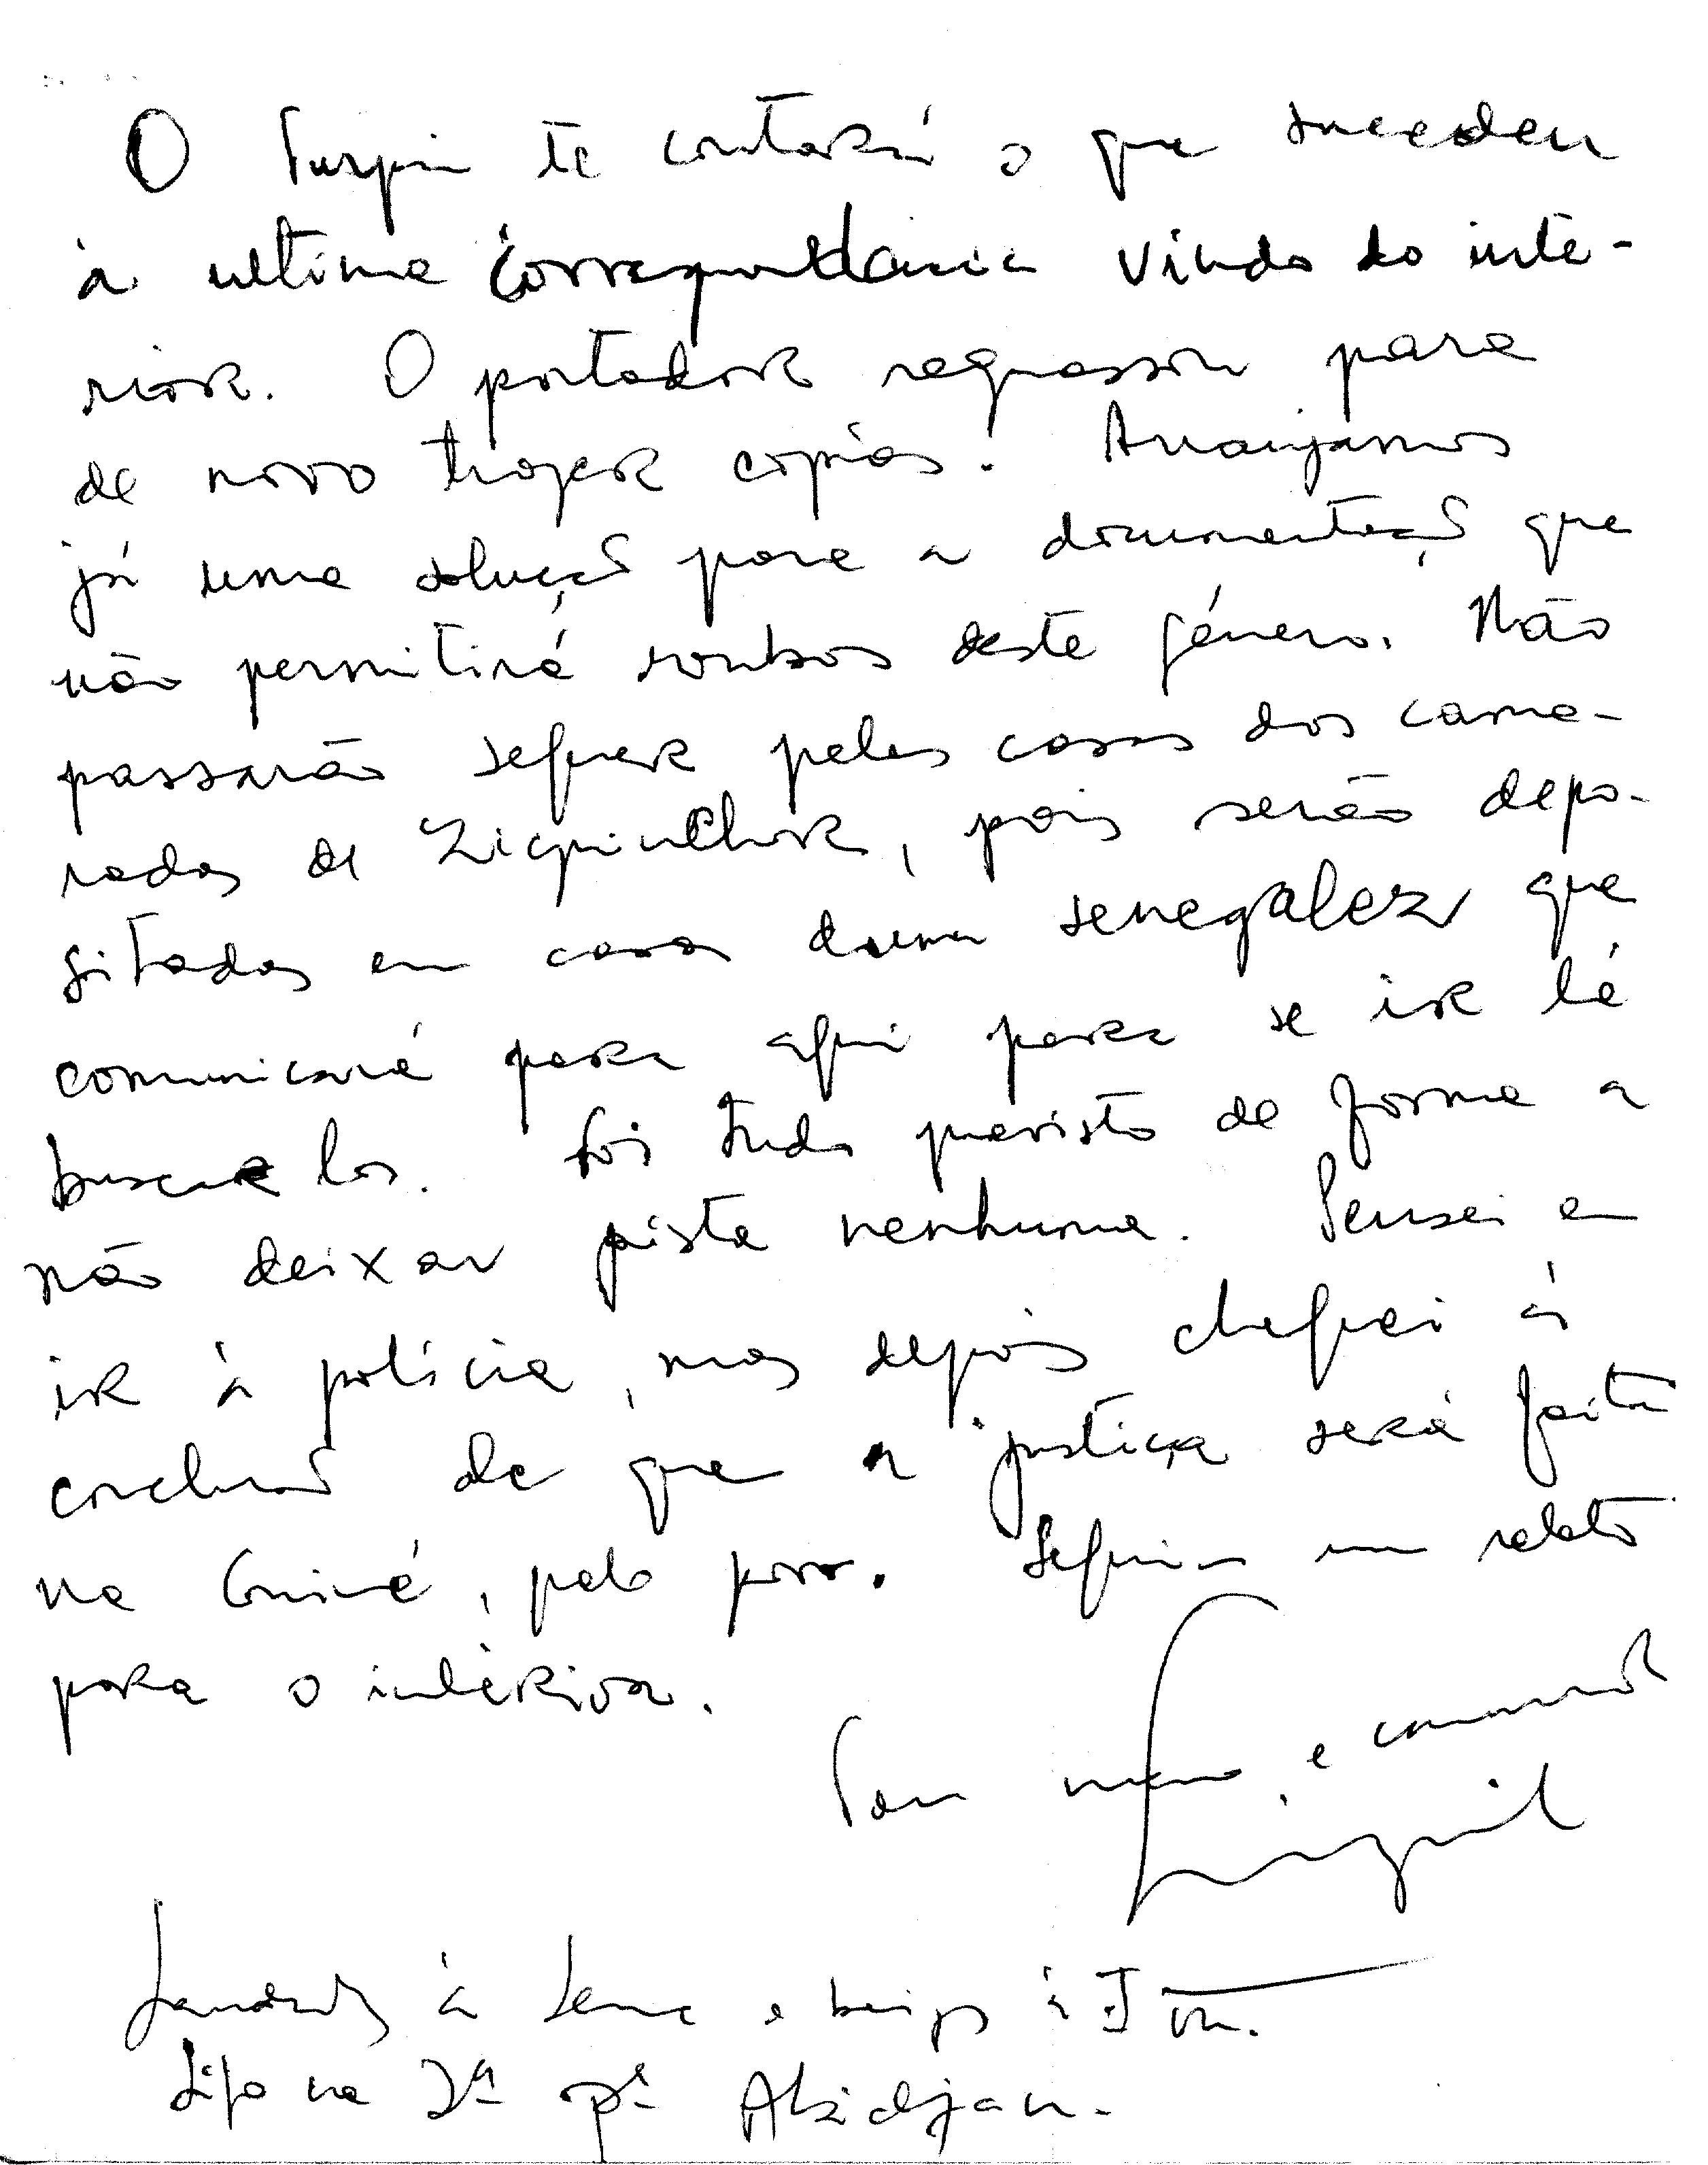 O Turpin te contará o que sucedeu
à ultima correspondencia vinda do inte-
rior. O portador regressou para
de novo trazer copias. Arranjamos
já uma solução para a documentação que
não permitirá roubos deste género. Não
passarão sequer pelas casas dos cama-
radas de Ziguinchor, pois serão depo-
sitados em casa duma senegalez que
comunicará para aqui para se ir lá
buscar los. Foi tudo previsto de forma a
não deixar pista nenhuma. Pensei em
ir à polícia, mas depois cheguei à
conclusão de que a justiça será feita
na Guiné, pelo povo. Seguiu um relato
para o intérior.
Teu mano e camarada
Luiz
Saudades à Lena e beijos à Iva.
Sigo na 2ª pª Abidjan.